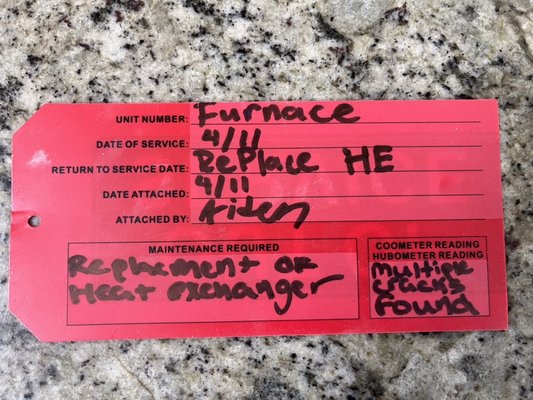 UNIT NUMBER: Furnace
DATE OF SERVICE: 4/11
RETURN TO SERVICE DATE: Replace HE
DATE ATTACHED: 4/11
ATTACHED BY: Aiden
MAINTENANCE REQUIRED
Replacment of
Heat exchanger
COOMETER READING
HUBOMETER READING
Multiple
cracks
Found